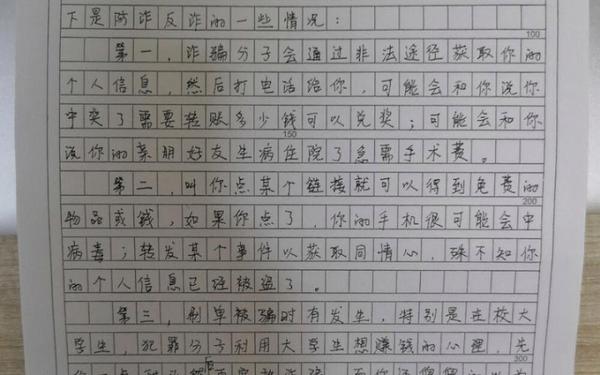 下是防诈反诈的一些情况：
100
第一，诈骗分子会通过非法途径获取你的
个人信息，然后打电话给你，可能会和你说你
中奖了需要转账多少钱可以兑奖；可能会和你
150
说你的亲朋好友生病住院了急需手术费。
第二，叫你点某个链接就可以得到免费的
200
物品或钱，如果你点了，你的手机很可能会中
病毒；转发某个事件以获取同情心，殊不知你
的个人信息已经被盗了。
第三，刷单被骗时有发生，特别是在校大
学生，犯罪分子利用大学生想赚钱的心理，先
300